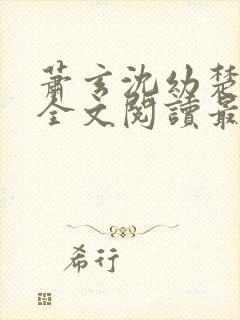 萧玄沈幼楚
全文阅读最
希行